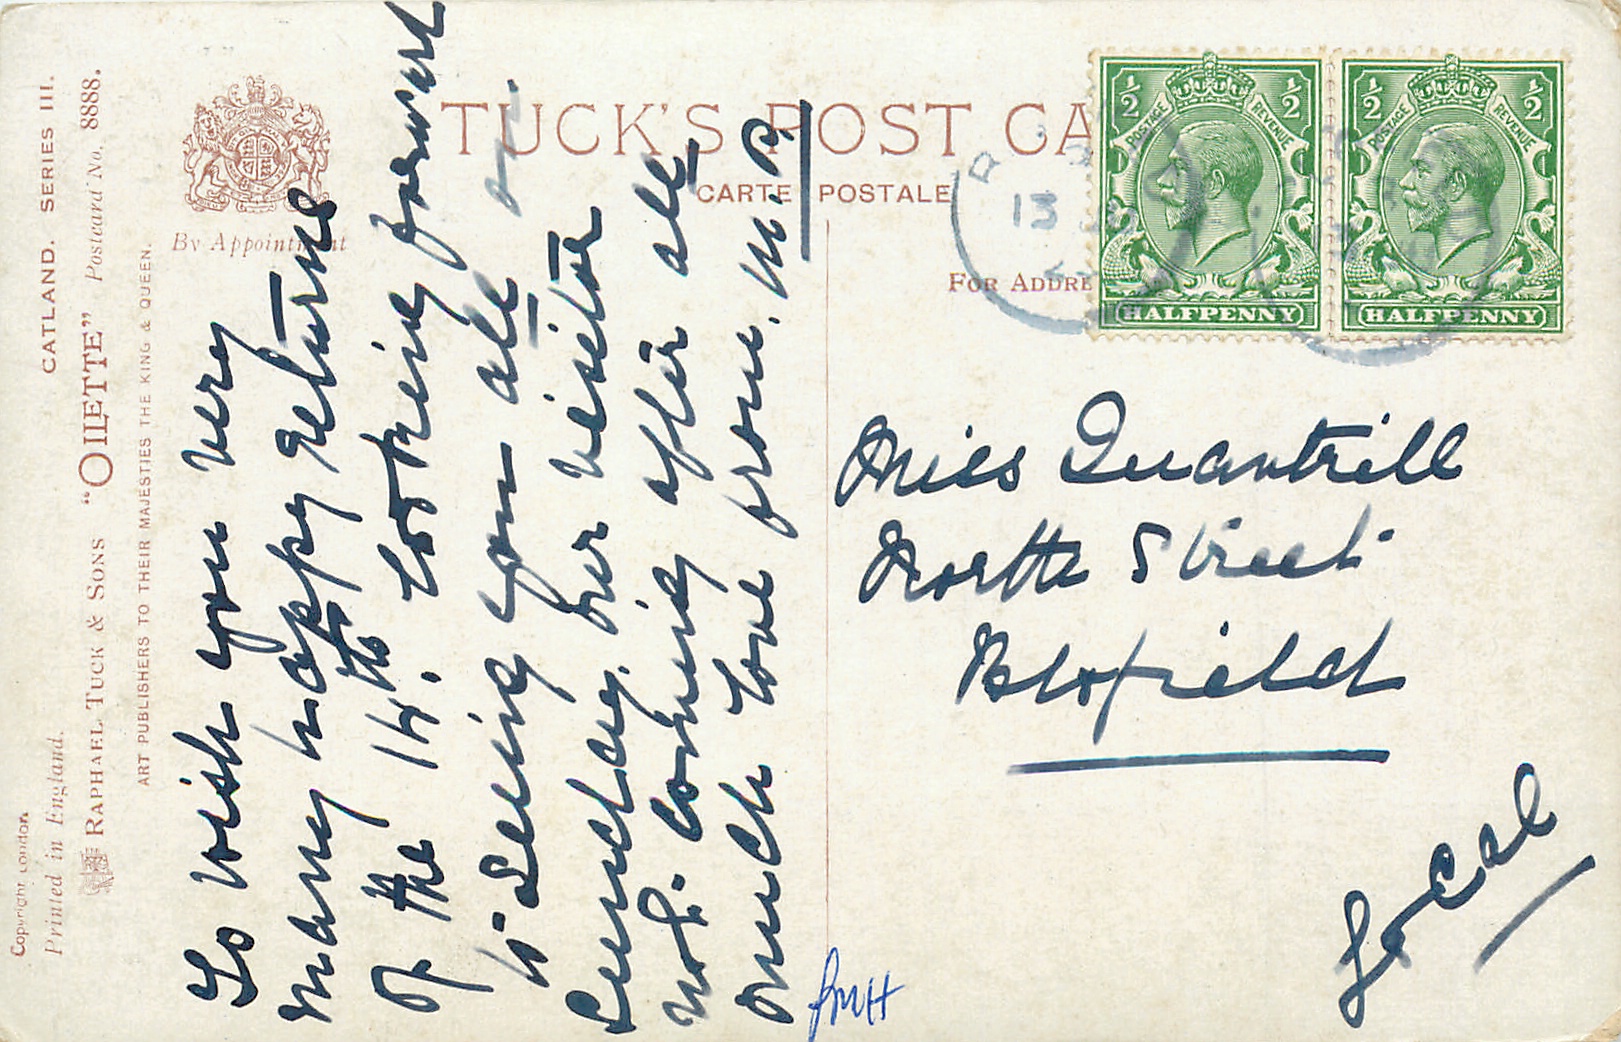 Copyright London
Printed in England.
CATLAND. SERIES III.
RAPHAEL TUCK & SONS "OILETTE" Postcard No. 8888.
ART PUBLISHERS TO THEIR MAJESTIES THE KING & QUEEN.
By Appointment
TUCK'S POST CA
CARTE POSTALE
FOR ADDRE
1/2 1/2
POSTAGE REVENUE
HALFPENNY
1/2 1/2
POSTAGE REVENUE
HALFPENNY
13
To wish you very
many happy returns
of the 14th. Looking forward
to seeing you all on
Sunday, our visitor
not coming after all
much love from. M. B.
Miss Quantrill
North Street
Blofield
Local